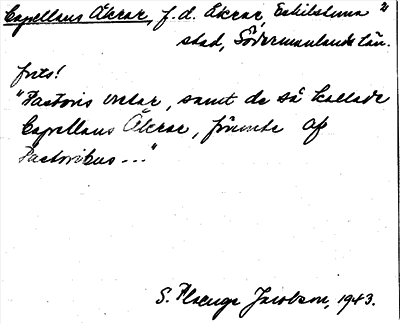 Capellans Åkrar, f.d. åkrar, Eskilstuna
stad, Södermanlands län.
forts!
"Pastoris vretar, samt de så kallade
Capellans Åkrar, förunte af
Pastoribus..."
S. Plænge Jacobson, 1943.